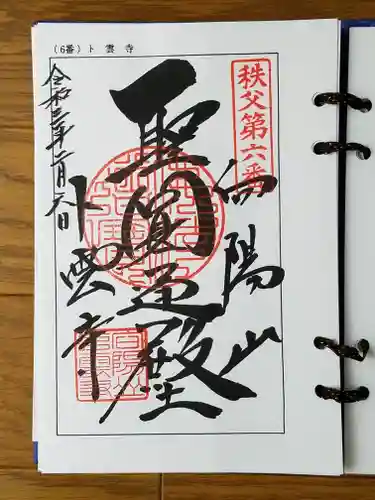 （6番）卜雲寺
秩父第六番
向陽山
聖圓通殿
卜雲寺
令和三年二月六日